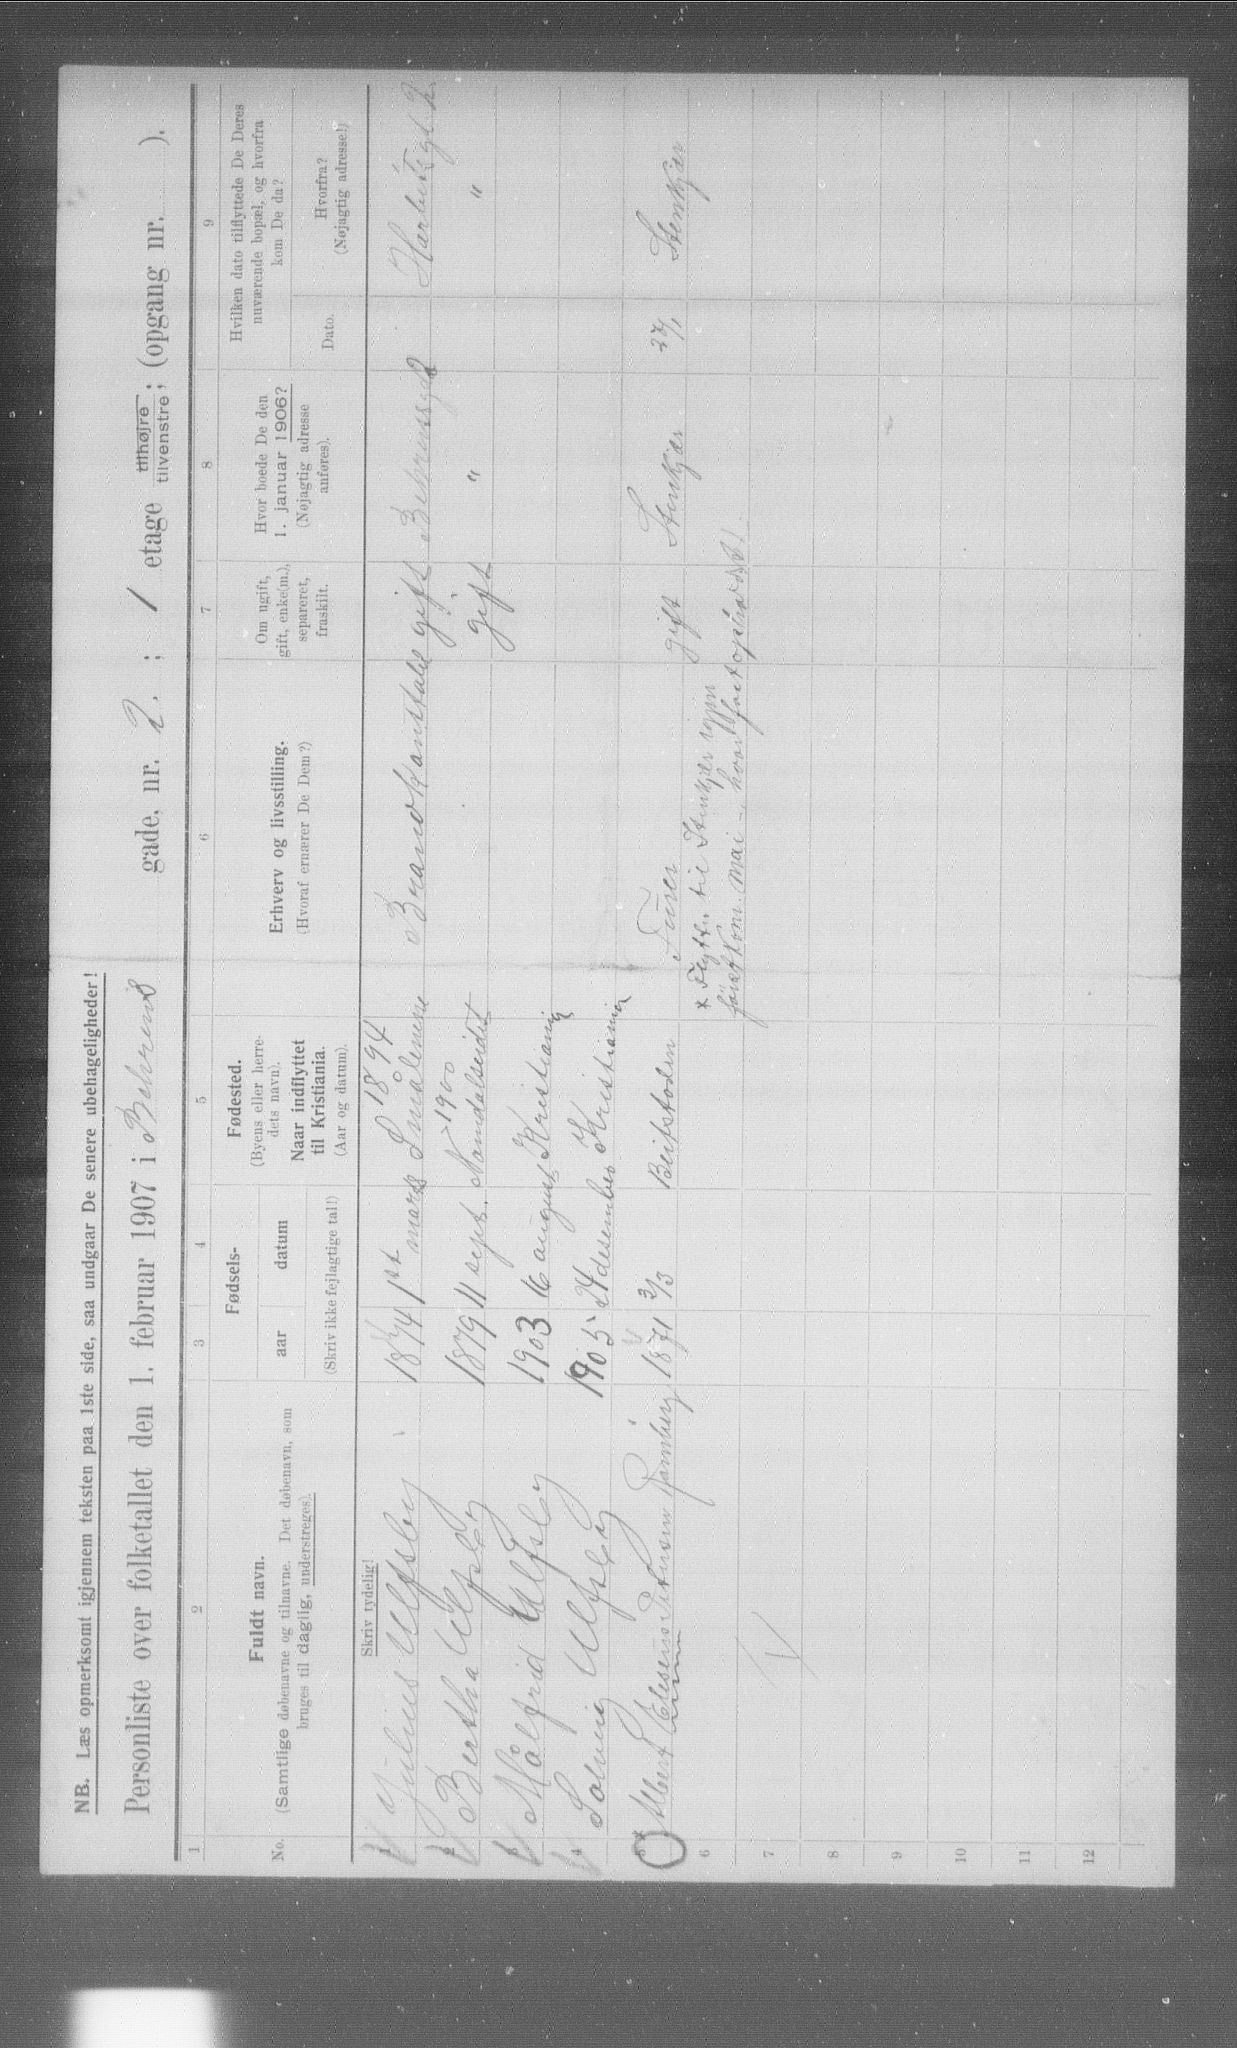 NB. Læs opmerksomt igjennem teksten paa 1ste side, saa undgaar De senere ubehageligheder!
Personliste over folketallet den 1. februar 1907 i Behrens gade, nr. 2. ; 1 etage tilhøjre tilvenstre; (opgang nr. ).
1 2 3 4 5 6 7 8 9
No.
Fuldt navn.
(Samtlige døbenavne og tilnavne. Det døbenavn, som
bruges til daglig, understreges).
Fødsels-
aar datum
(Skriv ikke fejlagtige tal!)
Fødested.
(Byens eller herre-
dets navn).
Naar indflyttet
til Kristiania.
(Aar og datum).
Erhverv og livsstilling.
(Hvoraf ernærer De Dem?)
Om ugift,
gift, enke(m.),
separeret,
fraskilt.
Hvor boede De den
1. januar 1906?
(Nøjagtig adresse
anføres).
Hvilken dato tilflyttede De Deres
nuværende bopæl, og hvorfra
kom De da?
Dato.
Hvorfra?
(Nøjagtig adresse!)
Skriv tydelig!
1 Julius Ulfsby 1874 1ste mars Smålenene 1894 Brandkonstabel gift Behrensgd 2
2 Bertha Ulfsby 1879 11 sept. Namdalseidet 1900 gift " "
3 Målfrid Ulfsby 1903 16 august Kristiania
4 Solveig Ulfsby 1905 24 desember Kristiania
5 * Albert 1871 3/3 Beitstaden gift Stenkjær 27/1 Stenkjær
* Flytter til Stenkjær igjen
mai
6
7
8
9
10
11
12